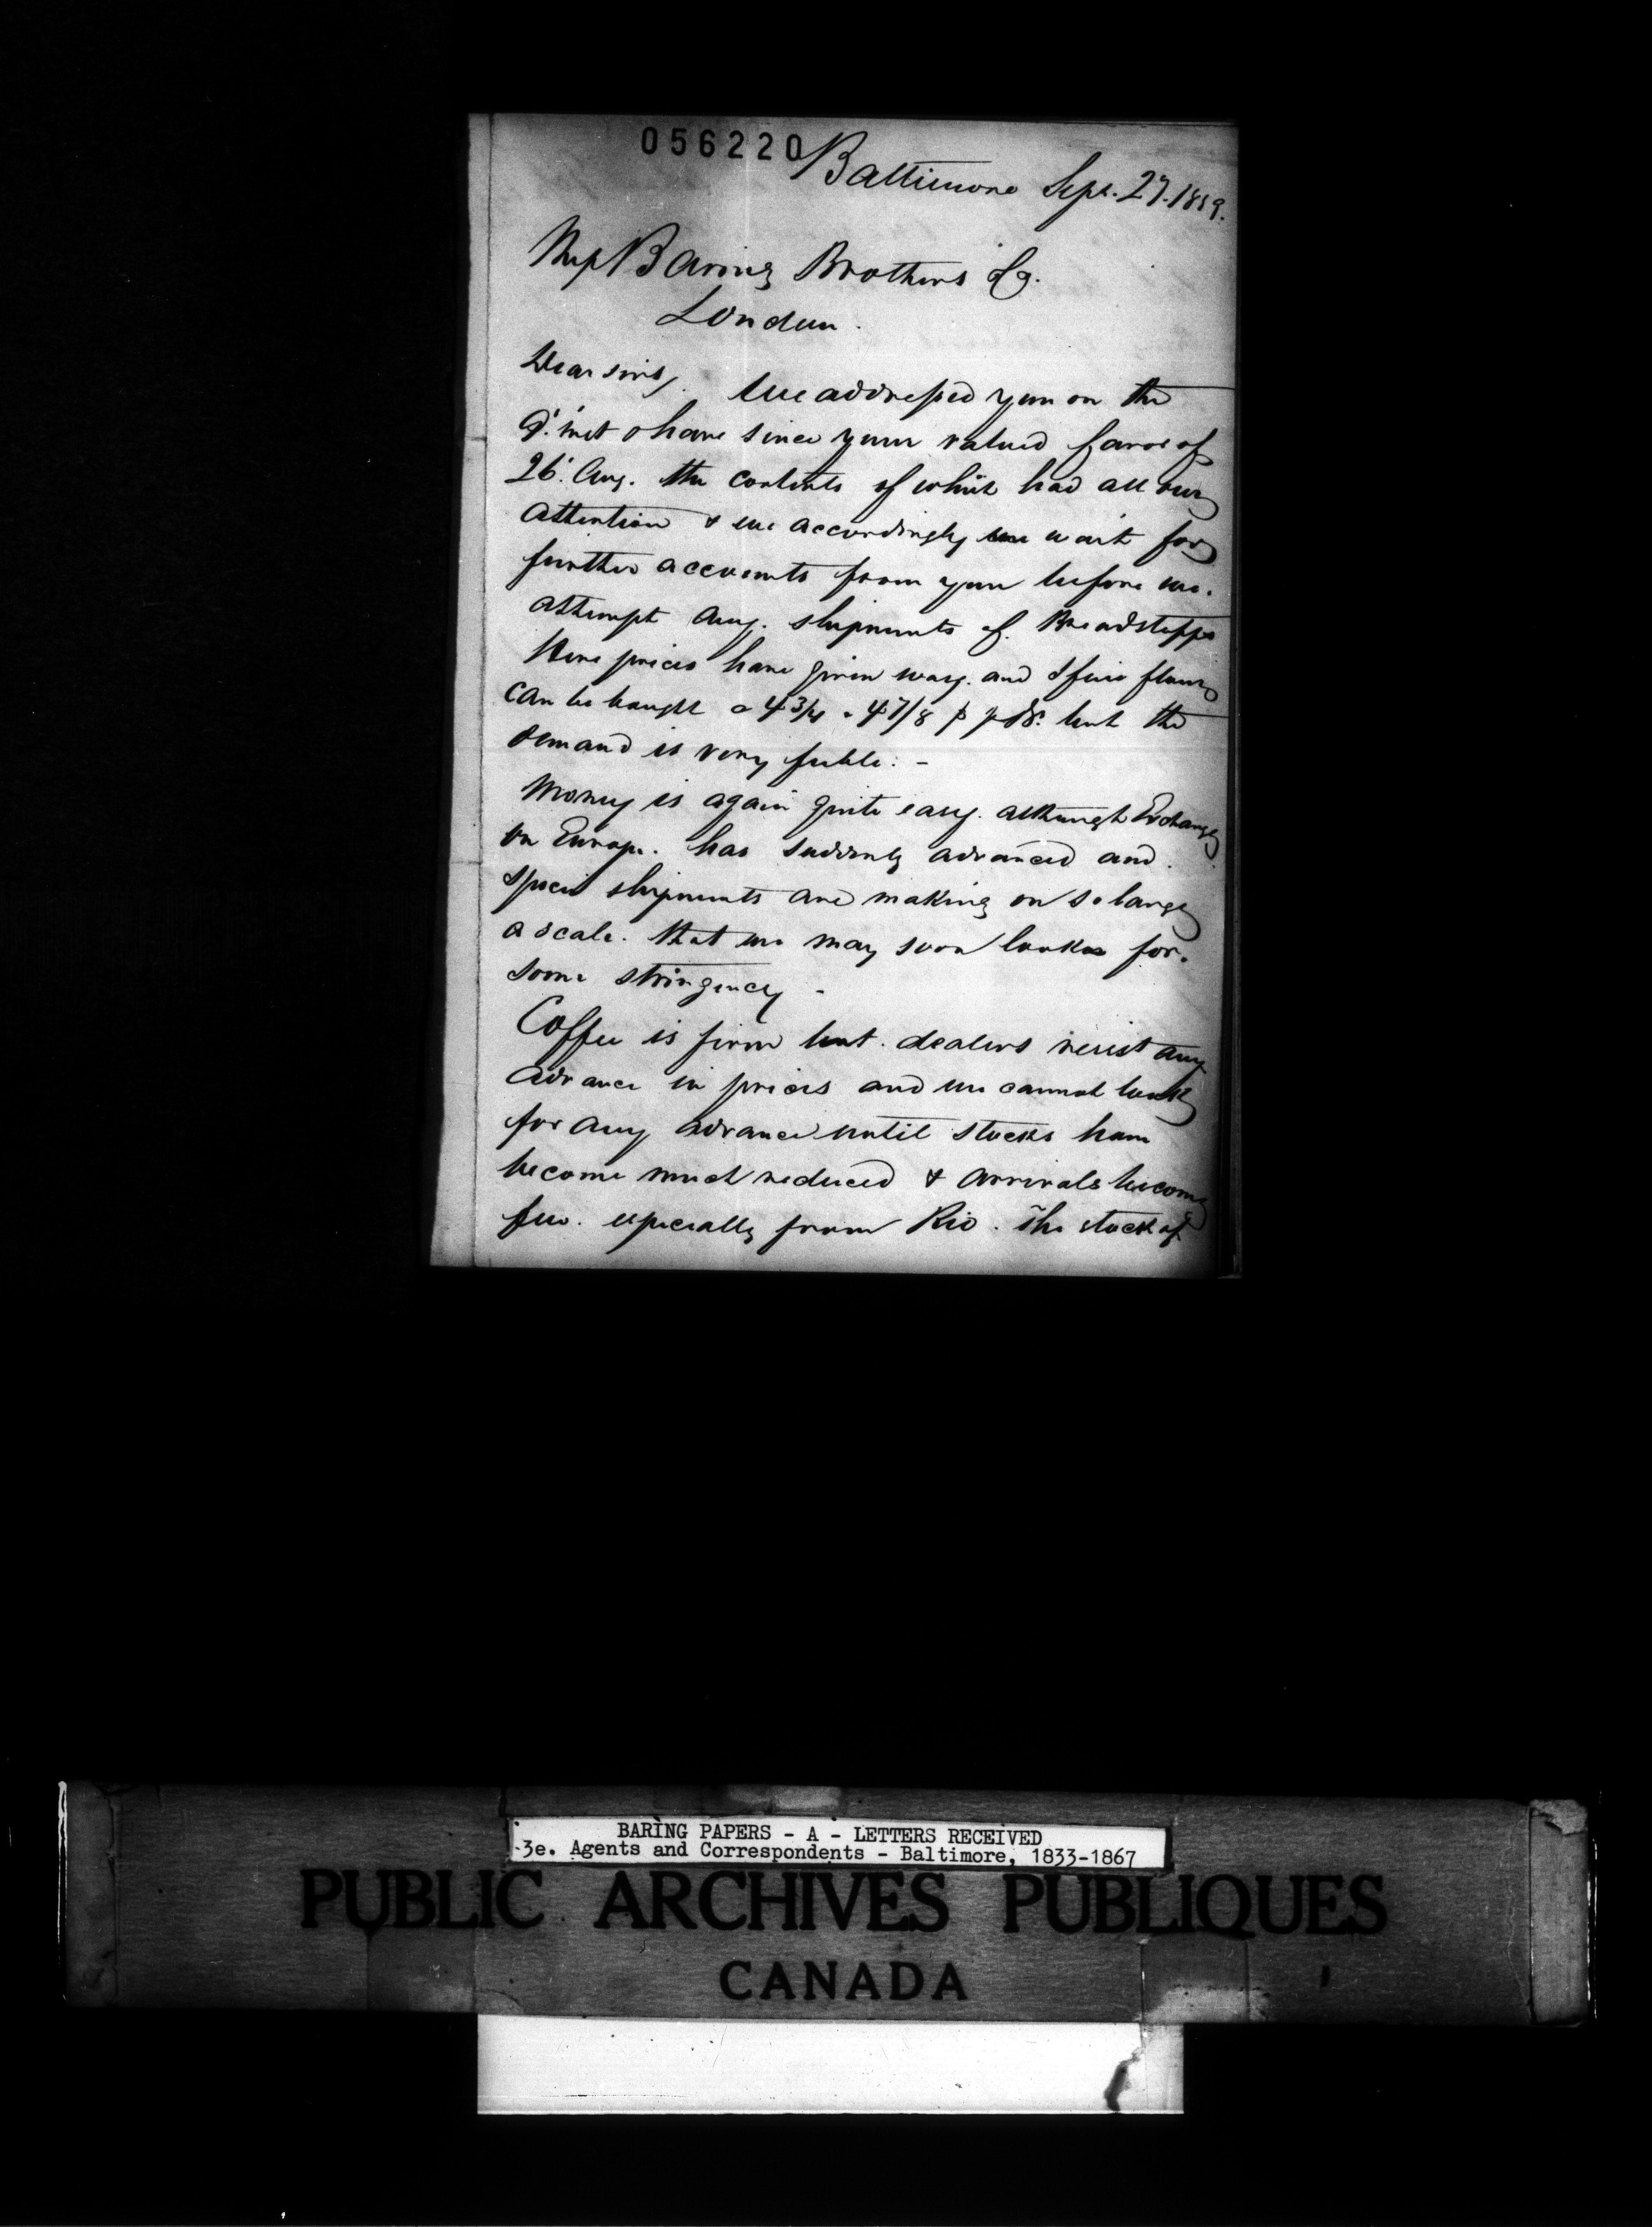 056220
Baltimore Sept. 27. 1859.
Messrs Baring Brothers & Co.
London.
Dear sirs, We addressed you on the
9' inst & have since your valued favor of
26' Aug. the contents of which had all our
attention & we accordingly wait for
further accounts from you before we
attempt any shipments of Breadstuffs
Here prices have given way. and fine flour
can be bought a 4 3/4 a 4 7/8 $ p but the
demand is very feeble. -
Money is again quite easy. although Exchange
on Europe. has suddenly advanced and
specie shipments are making on so large
a scale. that we may soon look for.
some stringency -
Coffee is firm but dealers resist any
advance in prices and we cannot look
for any advance until stocks have
become much reduced & arrivals become
few. especially from Rio. The stock of
BARING PAPERS - A - LETTERS RECEIVED
3e. Agents and Correspondents - Baltimore, 1833-1867
PUBLIC ARCHIVES PUBLIQUES
CANADA